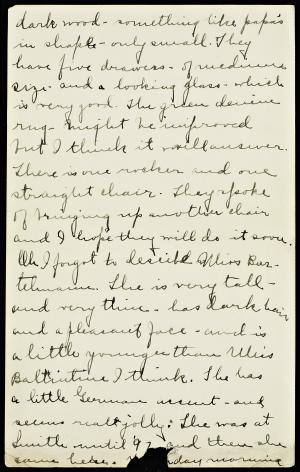 dark wood - something like papa's
in shape - only small. They
have five drawers - of medium
size - and a looking glass - which
is very good. The green denim
rug - might be improved
but I think it will answer.
There is one rocker and one
straight chair. They spoke
of bringing up another chair
and I hope they will do it soon.
Oh I forgot to describe Miss Bar-
telmann. She is very tall -
and very thin - has dark hair
and a pleasant face - and is
a little younger than Miss
Ballintine I think. She has
a little German accent - and
seems real jolly. She was at
Smith until 97 and then she
came here. day morning